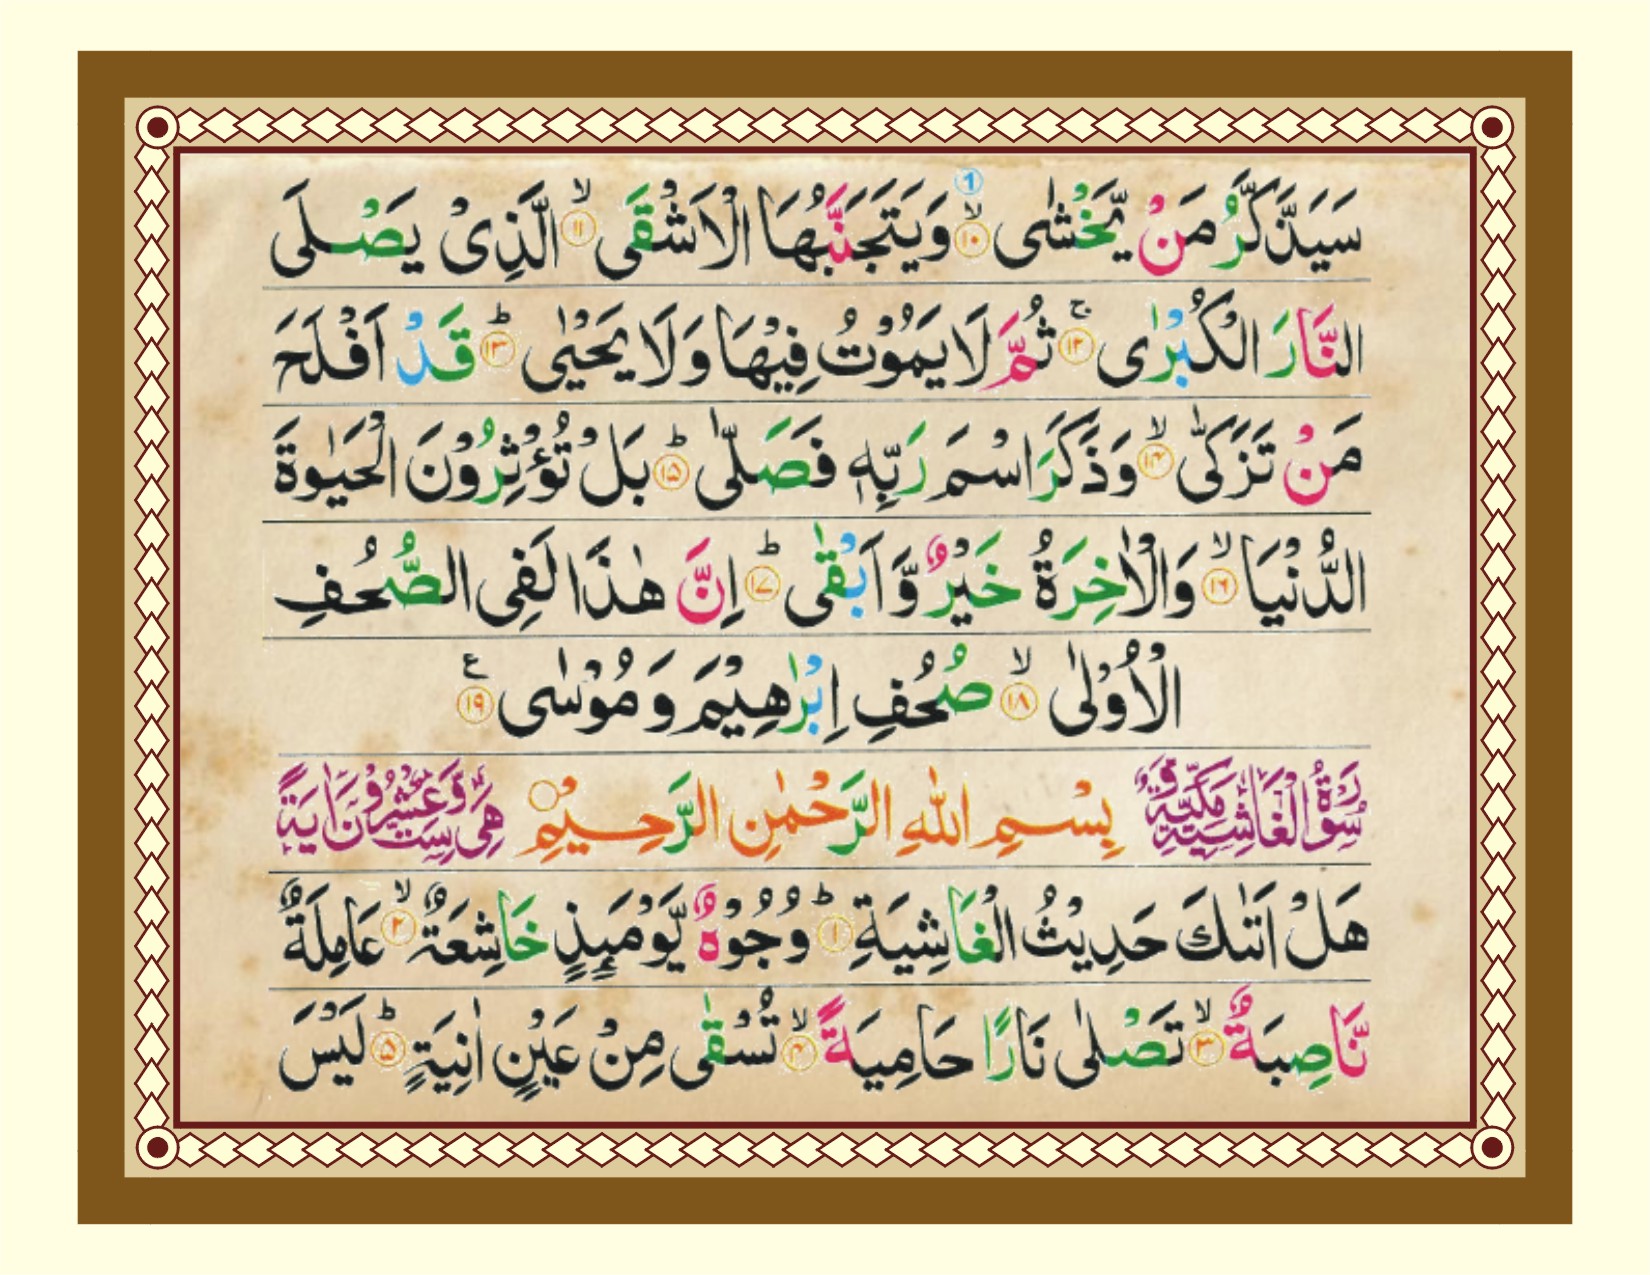 سَيَذَّكَّرُ مَنْ يَّخْشٰى ۙ﴿۱۰﴾ وَيَتَجَنَّبُهَا الْاَشْقَى ۙ﴿۱۱﴾ الَّذِىْ يَصْلَى
النَّارَ الْكُبْرٰى ۚ﴿۱۲﴾ ثُمَّ لَا يَمُوْتُ فِيْهَا وَلَا يَحْيٰى ؕ﴿۱۳﴾ قَدْ اَفْلَحَ
مَنْ تَزَكّٰى ۙ﴿۱۴﴾ وَذَكَرَ اسْمَ رَبِّهٖ فَصَلّٰى ؕ﴿۱۵﴾ بَلْ تُؤْثِرُوْنَ الْحَيٰوةَ
الدُّنْيَا ۙ﴿۱۶﴾ وَالْاٰخِرَةُ خَيْرٌ وَّاَبْقٰى ؕ﴿۱۷﴾ اِنَّ هٰذَا لَفِى الصُّحُفِ
الْاُوْلٰى ۙ﴿۱۸﴾ صُحُفِ اِبْرٰهِيْمَ وَمُوْسٰى ﴿۱۹﴾ ع
سُوْرَةُ الْغَاشِيَةِ مَكِّيَّةٌ وَّ بِسْمِ اللهِ الرَّحْمٰنِ الرَّحِيْمِ هِىَ سِتٌّ وَّعِشْرُوْنَ اٰيَةً
هَلْ اَتٰىكَ حَدِيْثُ الْغَاشِيَةِ ؕ﴿۱﴾ وُجُوْهٌ يَّوْمَىِٕذٍ خَاشِعَةٌ ۙ﴿۲﴾ عَامِلَةٌ
نَّاصِبَةٌ ۙ﴿۳﴾ تَصْلٰى نَارًا حَامِيَةً ۙ﴿۴﴾ تُسْقٰى مِنْ عَيْنٍ اٰنِيَةٍ ؕ﴿۵﴾ لَيْسَ